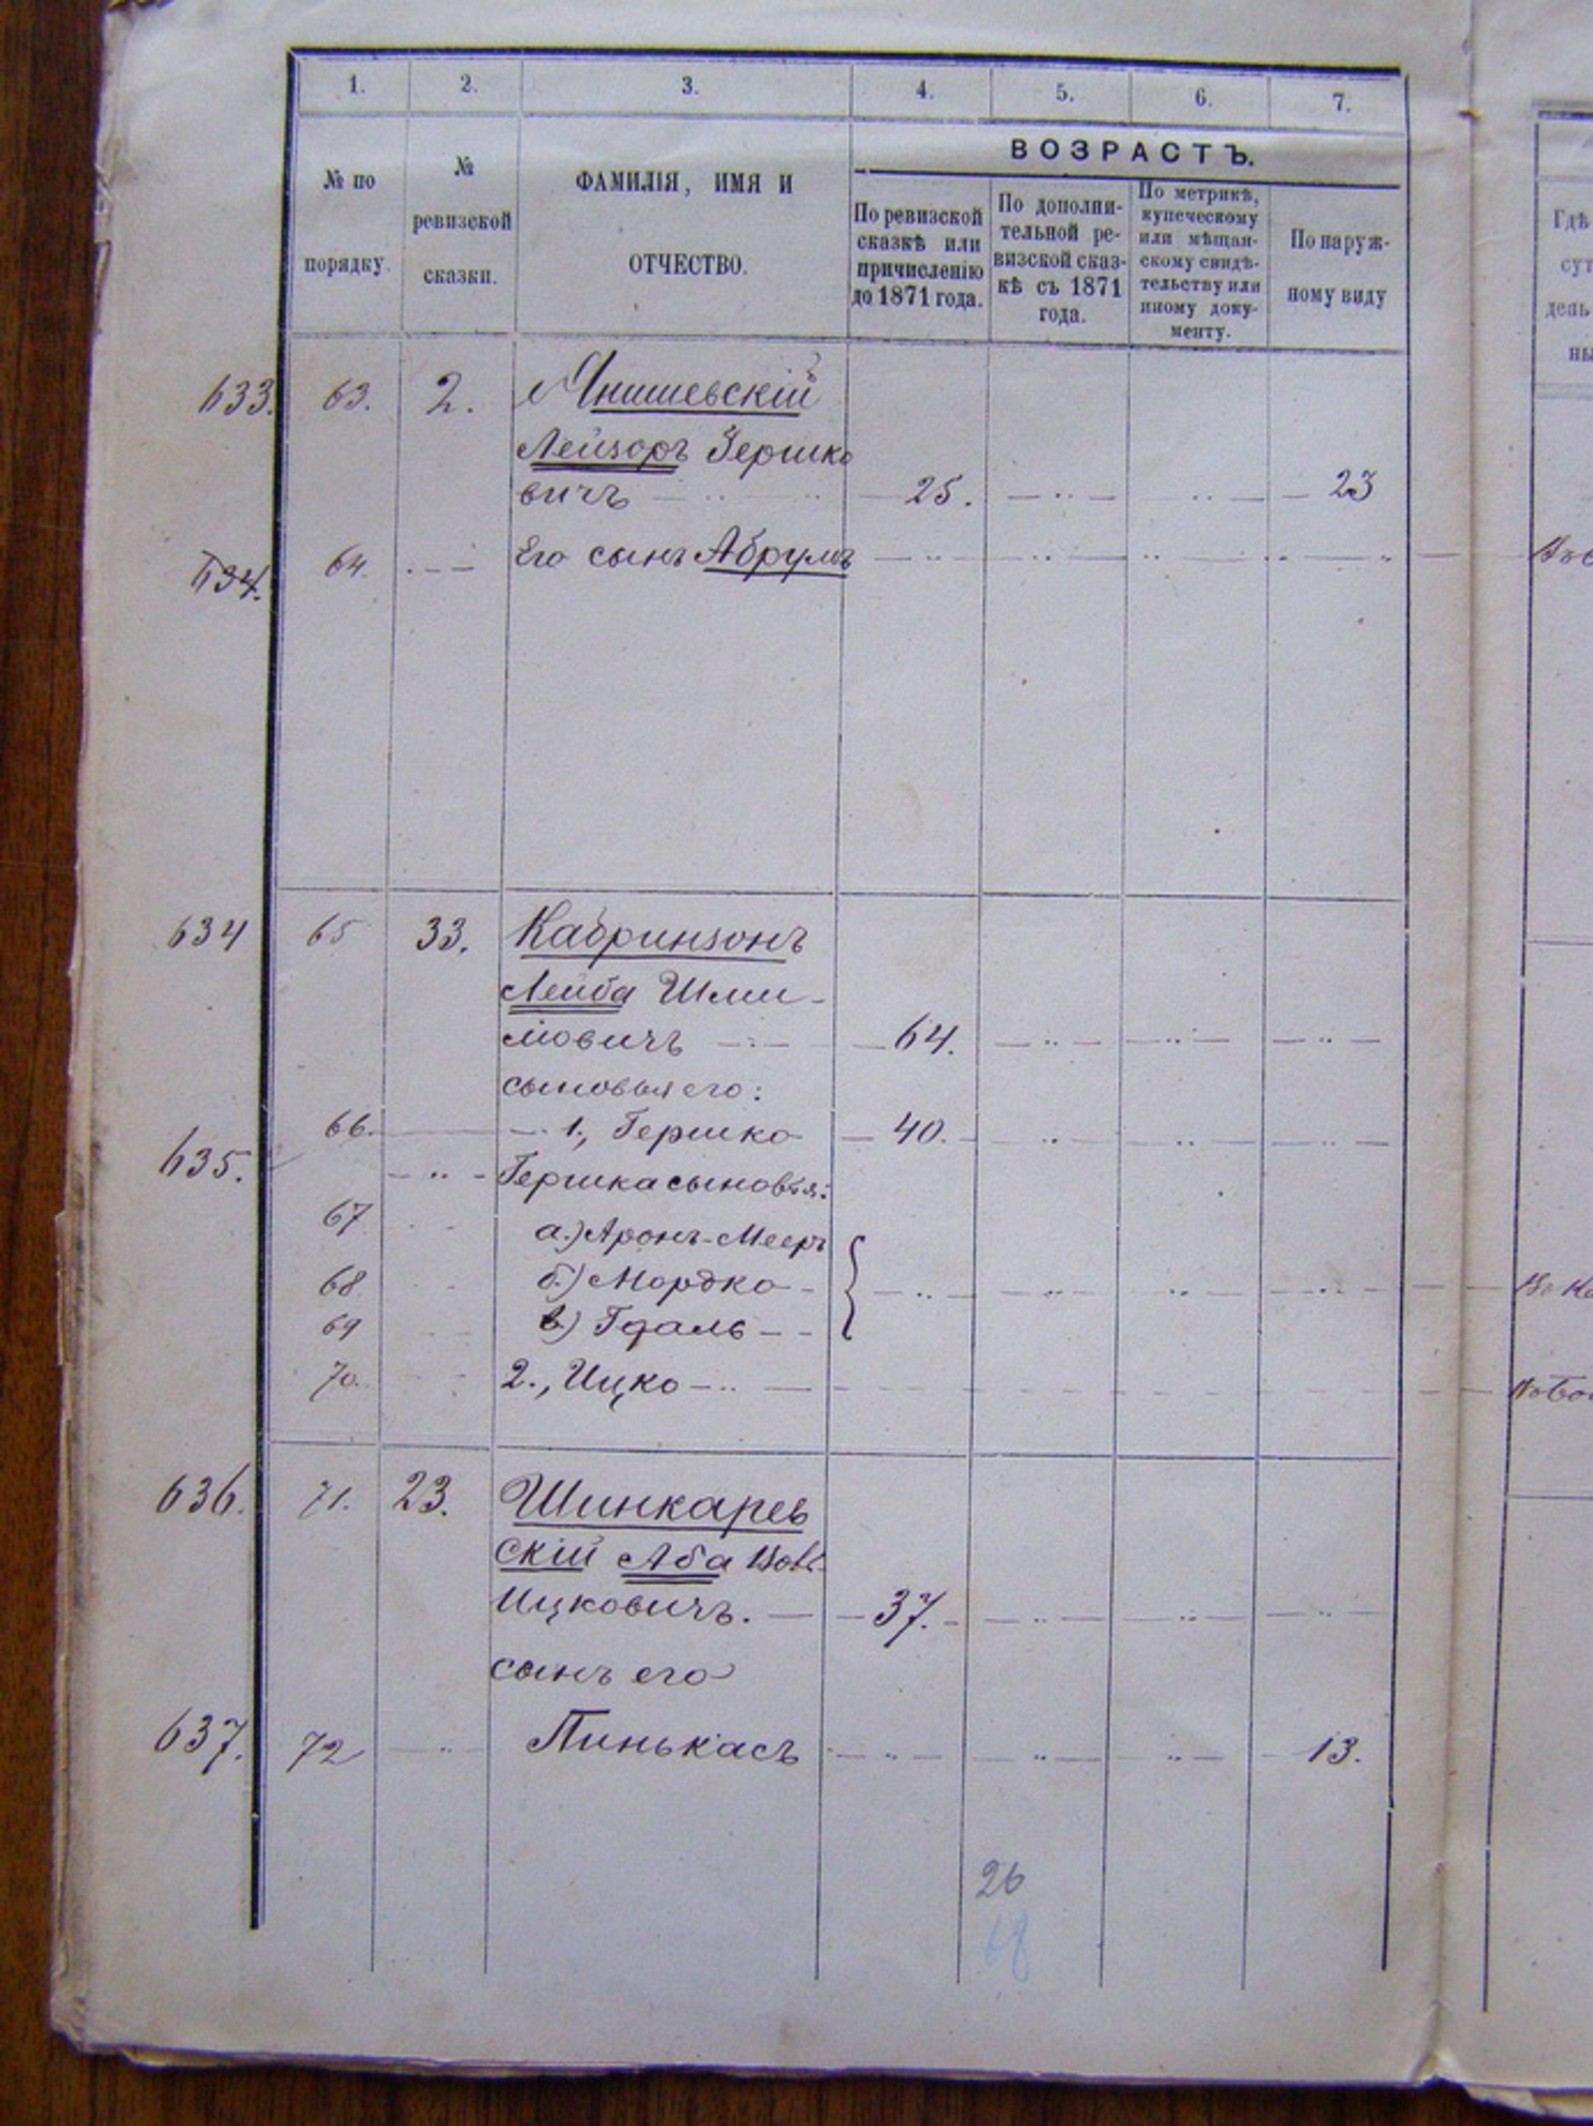 1. 2. 3. 4. 5. 6. 7.
ВОЗРАСТЪ.
№ по
порядку.
№
ревизской
сказки.
ФАМИЛІЯ, ИМЯ И
ОТЧЕСТВО.
По ревизской
сказкѣ или
причисленію
до 1871 года.
По дополни-
тельной ре-
визской сказ-
кѣ съ 1871
года.
По метрикѣ,
купеческому
или мѣщан-
скому свидѣ-
тельству или
иному доку-
менту.
По наруж-
ному виду
Гдѣ
сут
день
ны
633. 63. 2. Мнишевскій
Лейзоръ Гершко
вичъ 25. 23
634. 64. Его сынъ Абрумъ
634 65 33. Кабринзонъ
Лейба Шли-
мовичъ 64.
сыновья его:
66. 1., Гершко 40.
635. Гершка сыновья:
67 а.) Аронъ-Мееръ
68. б.) Мордко
69 в.) Гдаль
70. 2., Ицко
636. 71. 23. Шинкарев
скій Аба Вовъ
Ицковичъ. 37.
сынъ его
637. 72 Пинькасъ 13.
26
68